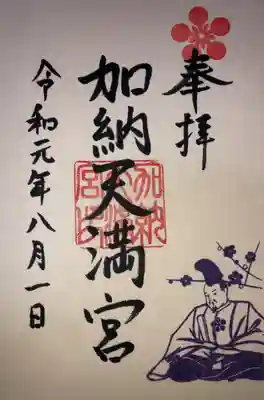 奉拝
加納天満宮
令和元年八月一日